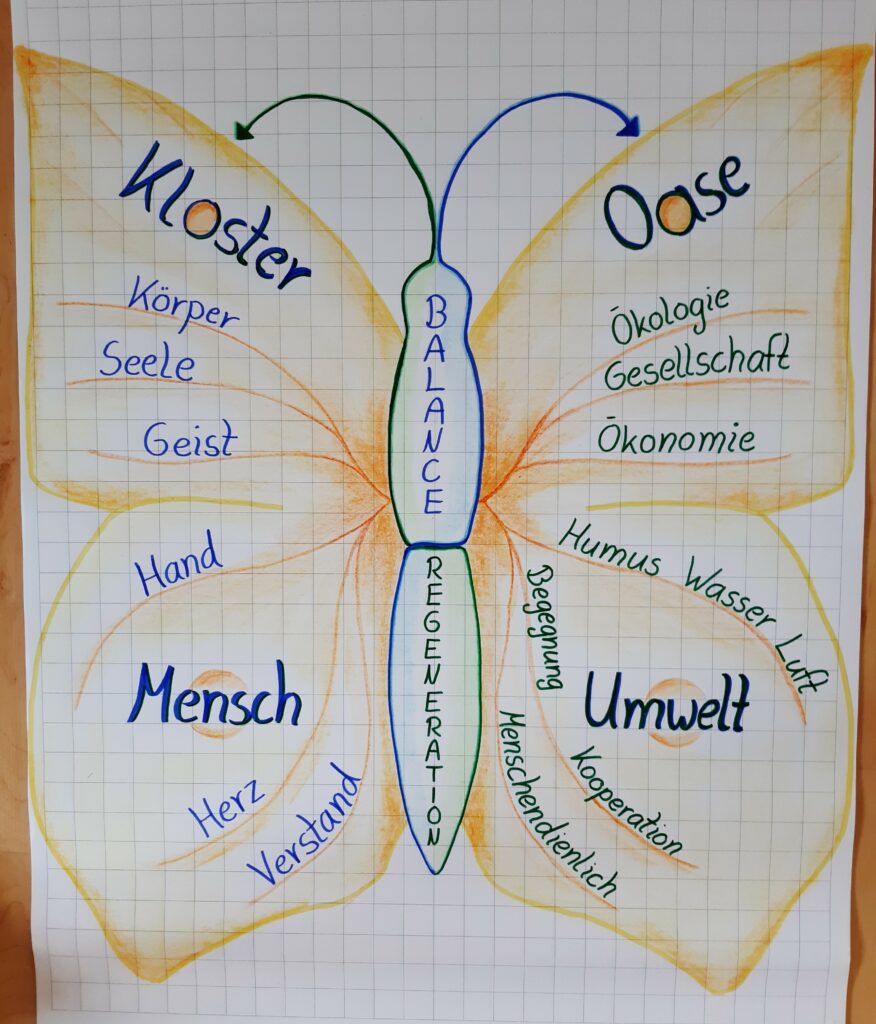 Kloster
Körper
Seele
Geist
Oase
Ökologie
Gesellschaft
Ökonomie
BALANCE
REGENERATION
Hand
Mensch
Herz
Verstand
Humus Wasser Luft
Begegnung
Umwelt
Kooperation
Menschendienlich